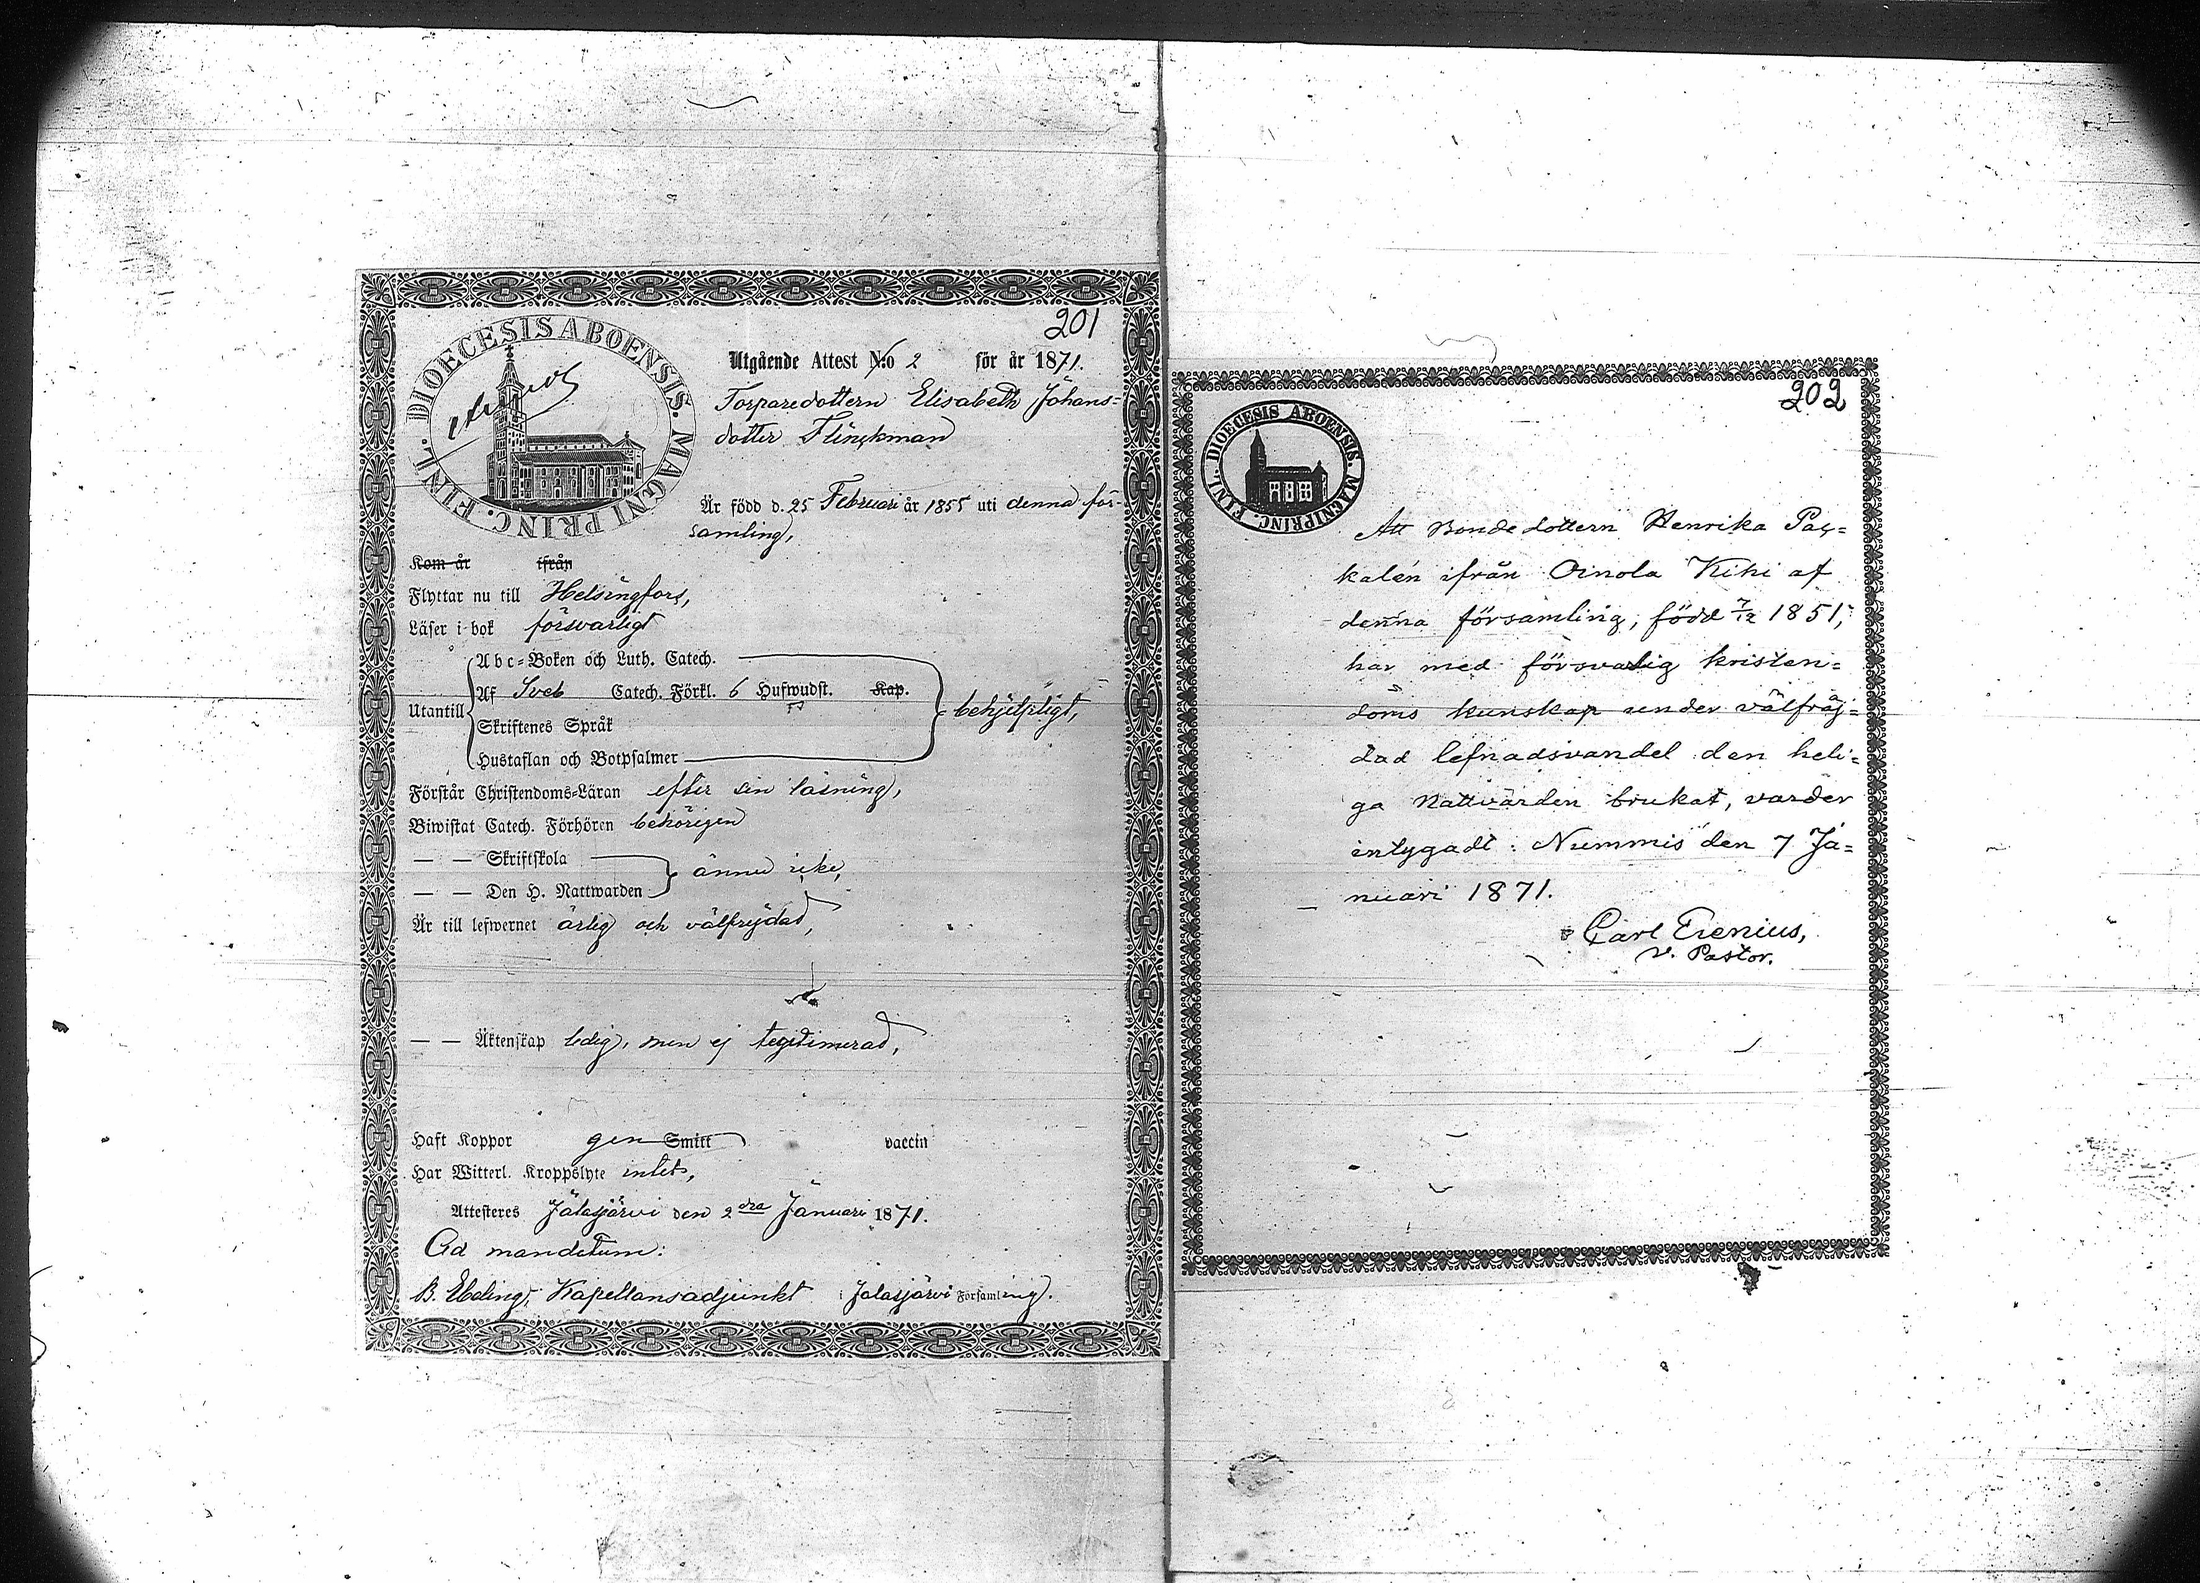 201
DIOECESIS ABOENSIS. MAGNI PRINC. FINL.
Utgående Attest N:o 2 för år 1871.
Torparedottern Elisabeth Johans-
dotter Flinckman
Är född d. 25 Februari år 1855 uti denna för-
samling,
Kom år ifrån
Flyttar nu till Helsingfors,
Läser i bok försvarligt
Utantill
Abc-Boken och Luth. Catech.
Af Sveb Catech. Förkl. 6 Hufwudst. Kap.
Skriftenes Språk
Hustaflan och Botpsalmer
behjelpligt,
Förstår Christendoms-Läran efter sin läsning,
Biwistat Catech. Förhören behörigen
— — Skriftskola
— — Den H. Nattwarden
ännu icke,
Är till lefwernet ärlig och välfrejdad,
— — Äktenskap ledig, men ej legitimerad,
Haft Koppor gen Smitt vaccin
Har Witterl. Kroppslyte intet,
Attesteres Jalasjärvi den 2dra Januari 1871.
Ad mandatum:
B. Ebeling, Kapellansadjunkt i Jalasjärvi Församling.
202
DIOECESIS ABOENSIS. MAGNI PRINC. FINL.
Att Bondedottern Henrika Pac-
kalén ifrån Oinola Kihi af
denna församling, född 7/12 1851,
har med försvarlig kristen-
doms kunskap under välfräj-
dad lefnadsvandel den heli-
ga Nattvarden brukat, varder
intygadt: Nummis den 7 Ja-
nuari 1871.
Carl Erenius,
v. Pastor.